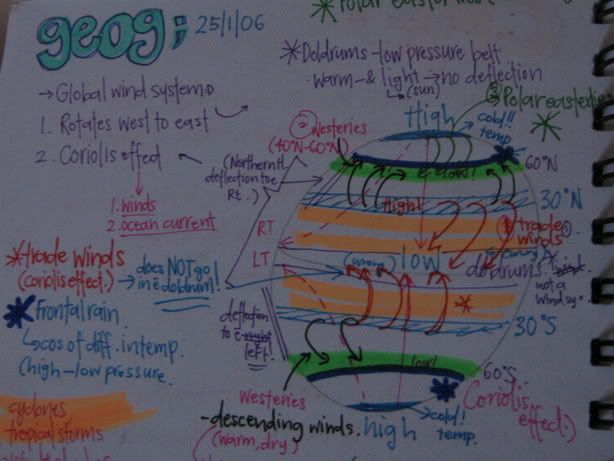 geog; 25/1/06
→ Global wind system
1. Rotates west to east
2. Coriolis effect
1. winds
2. ocean current
* trade winds
(coriolis effect.) → does NOT go
in e doldrum!
* Frontal rain
↳ cos of diff. in temp.
(high-low pressure.
cyclones
tropical storms
* Doldrums - low pressure belt
warm- & light → no deflection
↳ (sun)
② Westeries
(40°N-60°N)
(Northern H.
deflection to e
Rt.)
RT
LT
deflection
to e right
left.
High
cold!!
temp.
③ Polar easterlies
*
60°N
low!
High
30°N
① trade ①
winds
LOW
(wrong)
doldrums. *
wind
not a
wind sys.
*
30°S
low!
60°S
Coriolis
effect.)
Westeries
-descending winds.
(warm, dry)
high
cold!
temp.